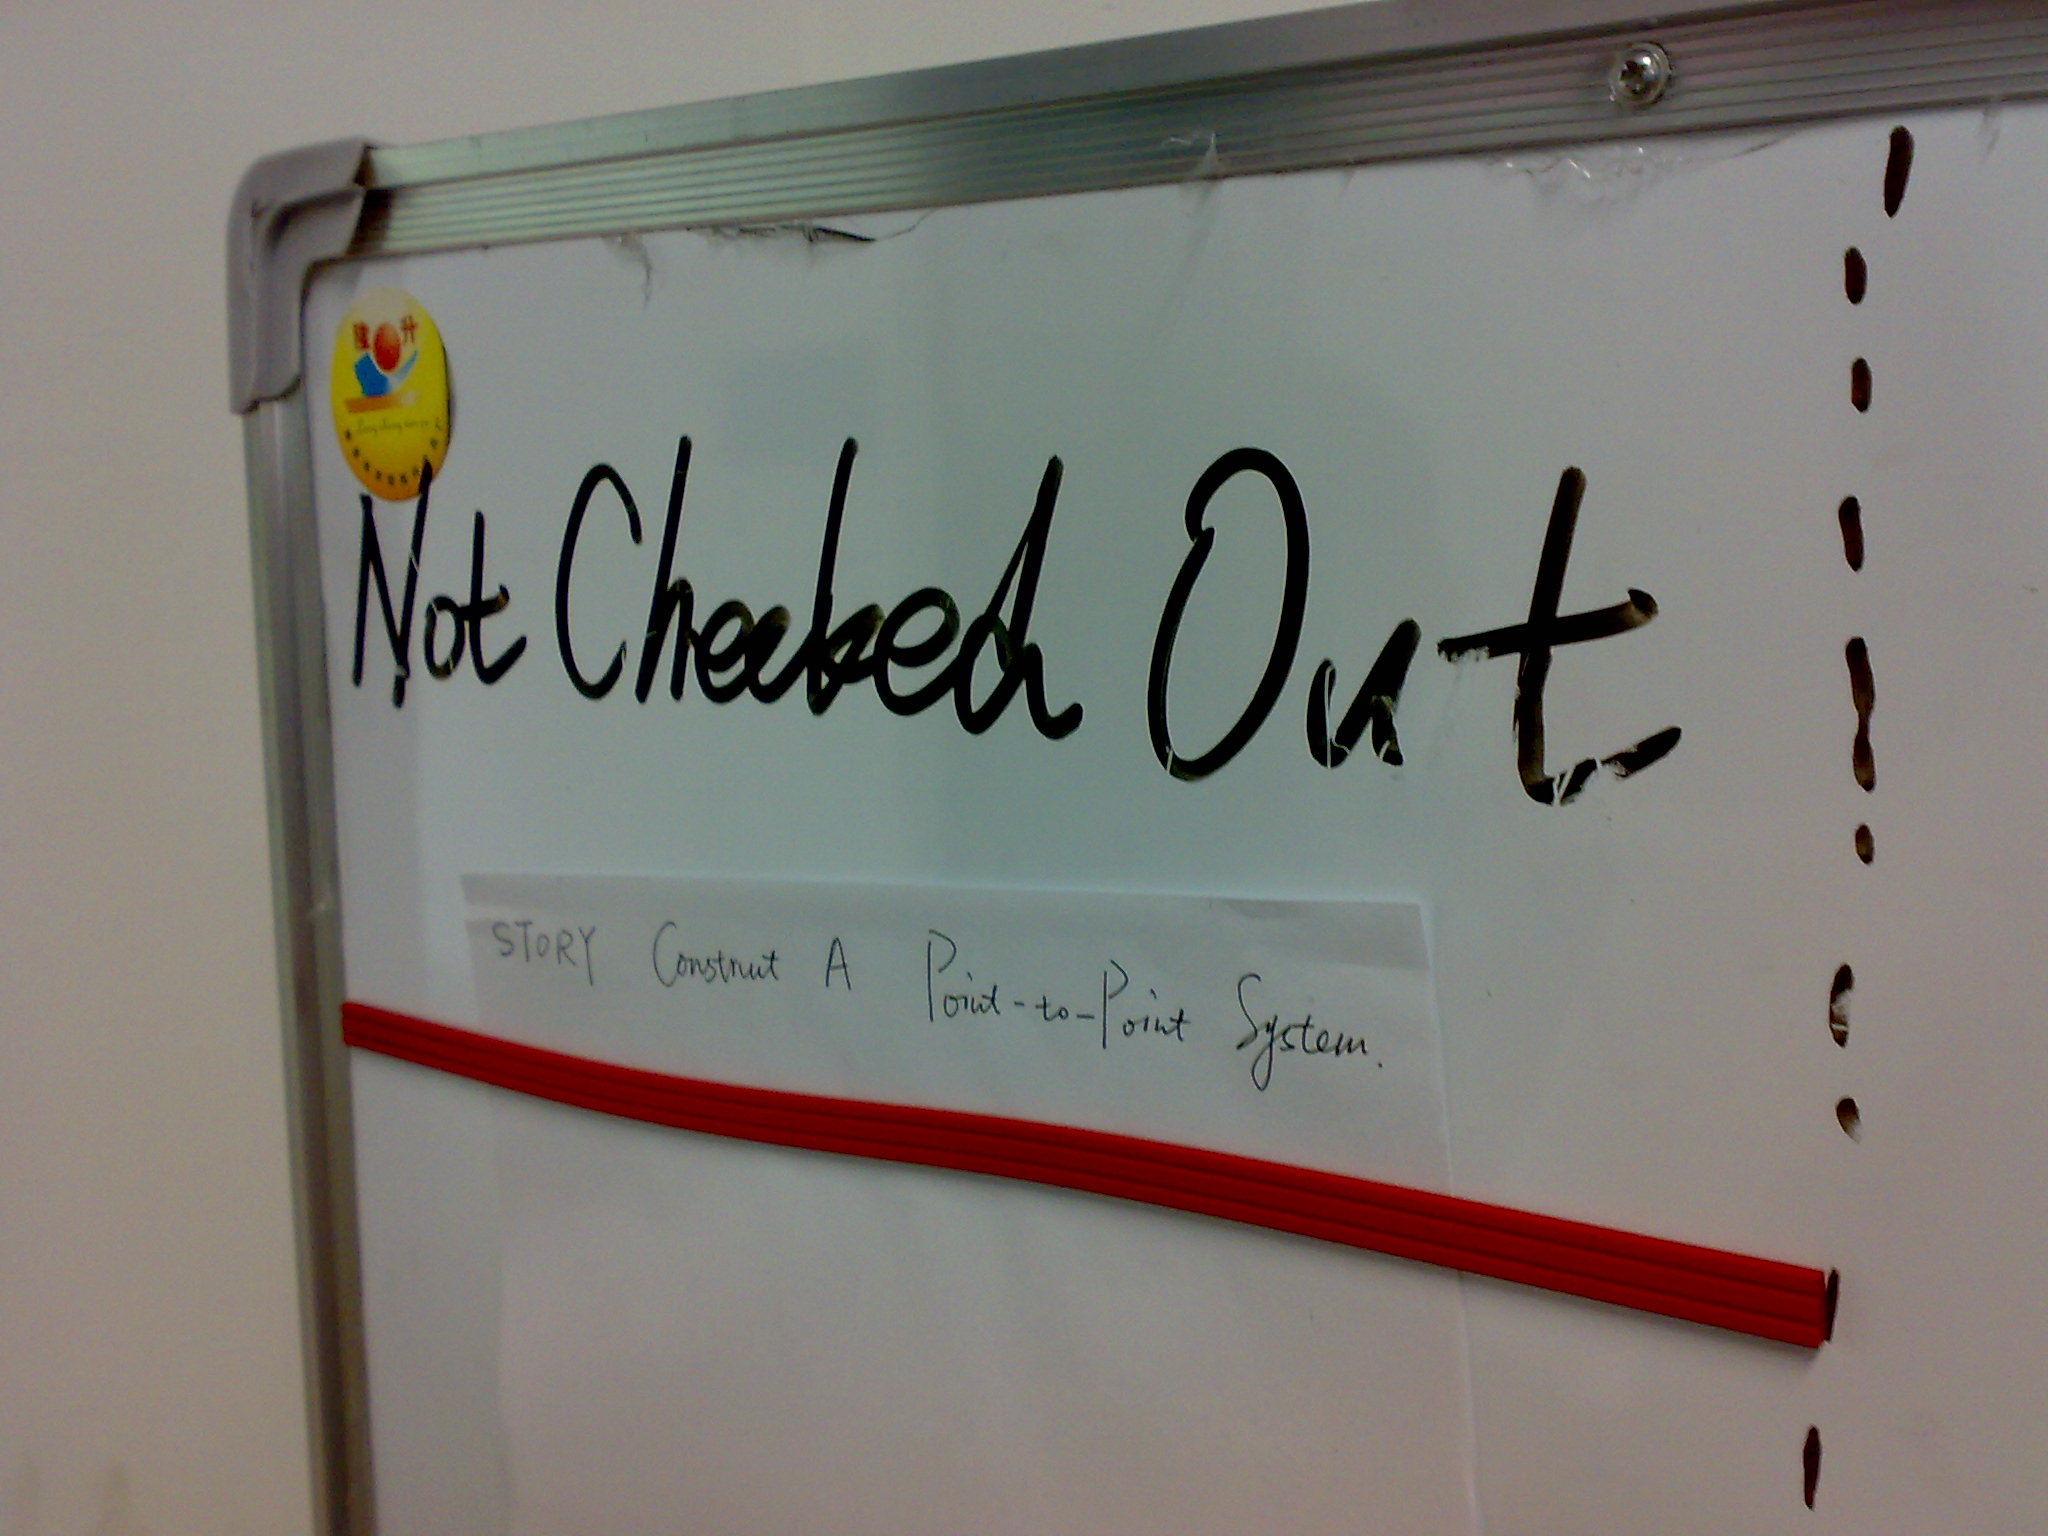 隆升
Not Checked Out
STORY Construt A Point-to-Point System.